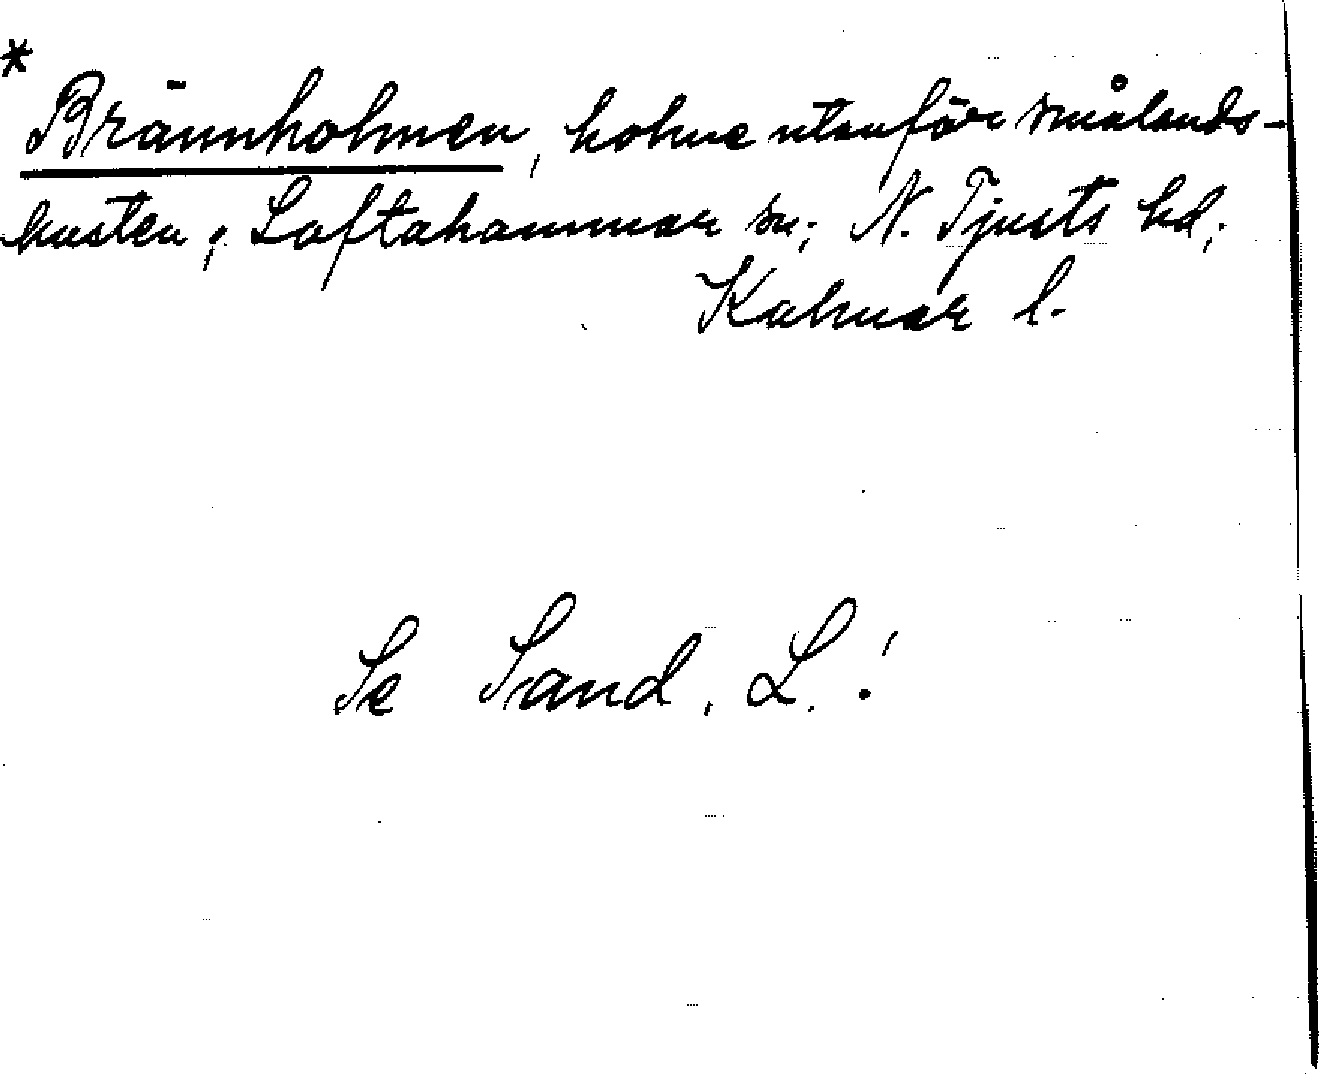 *
Brännholmen, holme utanför smålands-
kusten; Loftahammar sn; N. Tjusts hd;
Kalmar l.
Se Sand, L.!